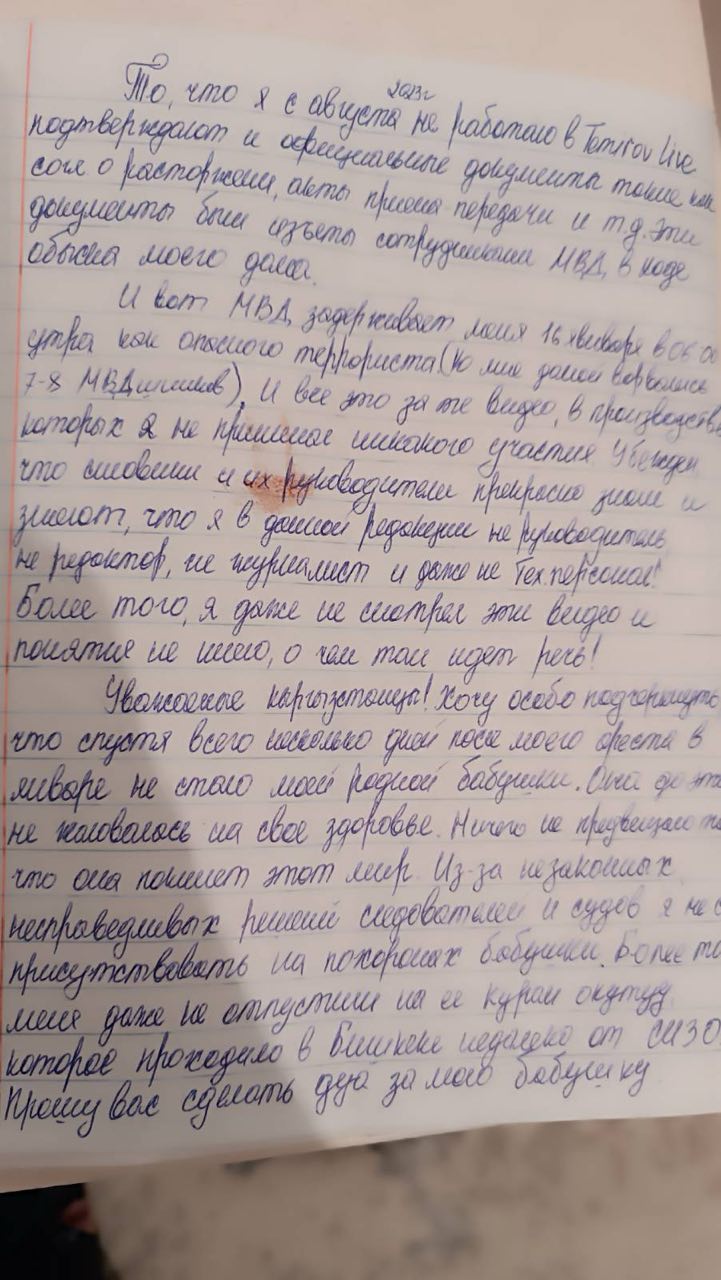 2023г
То, что я с августа не работаю в Temirov Live
подтверждают и официальные документы такие как
согл. о расторжени, акты приема передачи и т.д. эти
документы были изъяты сотрудниками МВД в ходе
обыска моего дома.
И вот МВД задерживает меня 16 января в 06 00
утра как опасного террориста (ко мне домой ворвались
7-8 МВДшников). И все это за те видео, в производстве
которых я не принимал никакого участия. Убежден
что силовики и их руководители прекрасно знали и
знают, что я в данной редакции не руководитель
не редактор, не журналист и даже не техперсонал!
Более того, я даже не смотрел эти видео и
понятия не имею, о чем там идет речь!
Уважаемые кыргызстанцы! Хочу особо подчеркнуть
что спустя всего несколько дней после моего ареста в
январе не стало моей родной бабушки. Она до
не жаловалась на свое здоровье. Ничего не предвещало
что она покинет этот мир. Из-за незаконных
несправедливых решений следователей и судов я не
присутствовать на похоронах бабушки. Более
меня даже не отпустили на ее куран окутуу
которое проходило в Бишкеке недалеко от СИЗО.
Прошу вас сделать дуа за мою бабушку